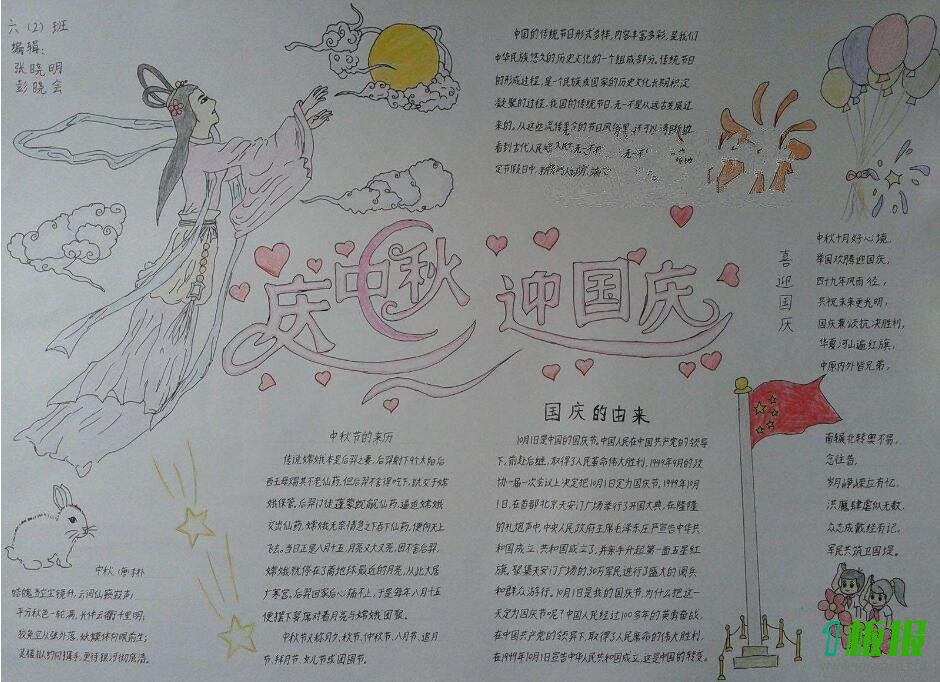 六（2）班
编辑：
张晓明
彭晓会
中国的传统节日形式多样，内容丰富多彩，是我们
中华民族悠久的历史文化的一个组成部分。传统节日
的形成过程，是一个民族或国家的历史文化长期积淀
凝聚的过程，我国的传统节日，无一不是从远古发展过
来的。从这些流传至今的节日风俗里，还可以清晰地
看到古代人民
定节假日中
庆中秋
迎国庆
喜迎国庆
中秋十月好心境，
举国欢腾迎国庆，
四十九年风雨径，
共祝未来更光明，
国庆兼颂抗洪胜利，
华夏河山遍红旗，
中原内外皆兄弟，
南辕北转要不易，
念往昔，
岁月峥嵘应有忆，
洪魔肆虐似无数，
众志成截经有记，
军民共筑卫国堤。
中秋节的来历
传说嫦娥本是后羿之妻，后羿射下9个太阳后
西王母赐其不老仙药，但后羿不舍得吃下，就交于嫦
娥保管。后羿门徒蓬蒙觊觎仙药，逼迫嫦娥
交出仙药，嫦娥无奈情急之下吞下仙药，便向天上
飞去。当日正是八月十五，月亮又大又亮，因不舍后羿，
嫦娥就停在了离地球最近的月亮，从此长居
广寒宫。后羿回家后心痛不止，于是每年八月十五
便摆下宴席对着月亮与嫦娥团聚。
中秋节又称月夕，秋节，仲秋节，八月节，追月
节，拜月节，女儿节或团圆节。
国庆的由来
10月1日是中国的国庆节。中国人民在中国共产党的领导
下，前赴后继，取得了人民革命伟大胜利，1949年9月的政
协一届一次会议上决定把10月1日定为国庆节。1949年10月
1日，在首都北京天安门广场举行了开国大典，在隆隆
的礼炮声中，中央人民政府主席毛泽东庄严宣告中华共
和国成立，共和国成立了，并亲手升起第一面五星红
旗。聚集天安门广场的30万军民进行了盛大的阅兵
和群众游行。10月1日是我的国庆节，为什么把这一
天定为国庆节呢？中国人民经过100多年的英勇奋战，
在中国共产党的领导下，取得了人民革命的伟大胜利，
在1949年10月1日宣告中华人民共和国成立，这是中国的转变。
中秋（唐 李朴）
皓魄当空宝镜升，云间仙籁寂声；
平分秋色一轮满，长伴云衢千里明；
狡兔空从弦外落，妖蟆休向眼前生；
灵槎拟约同携手，更待银河彻底清。
1板报